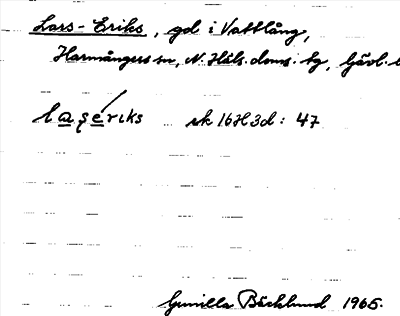 Lars-Eriks, gd i Vattlång,
Harmångers sn, N. Häls. doms. hg, Gävl.
laʂériks ek 16H3d: 47
Gunilla Bäcklund 1965.